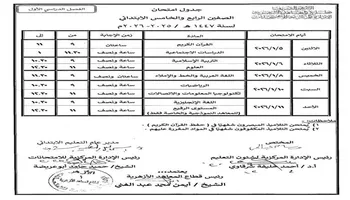 الفصل الدراسي الأول
جدول امتحان
الصفين الرابع والخامس الابتدائي
لسنة ١٤٤٧ هـ / ٢٠٢٥-٢٠٢٦ م
أيام الامتحان المادة زمن الإجابة من إلى
الاثنين ٢٠٢٦/١/٥ القرآن الكريم ساعتان ٩ ١١
الدراسات الاجتماعية ساعة ونصف ١١.٣٠ ١
الثلاثاء ٢٠٢٦/١/٦ التربية الإسلامية ساعة ونصف ٩ ١٠.٣٠
العلوم ساعة ونصف ١١ ١٢.٣٠
الخميس ٢٠٢٦/١/٨ اللغة العربية والخط والإملاء ساعتان ٩ ١١
السبت ٢٠٢٦/١/١٠ الرياضيات ساعة ونصف ٩ ١٠.٣٠
تكنولوجيا المعلومات والاتصالات ساعة ونصف ١١ ١٢.٣٠
الأحد ٢٠٢٦/١/١١ اللغة الإنجليزية ساعة ونصف ٩ ١٠.٣٠
المستوى الرفيع ساعة ونصف ١١ ١٢.٣٠
(المعاهد النموذجية والخاصة لغة)
ملاحظات:
١) يمتحن التلاميذ المبصرون شفهيًا في (حفظ القرآن الكريم).
٢) يمتحن التلاميذ المكفوفون شفهيًا في المواد المقررة عليهم.
مدير عام التعليم الابتدائي
رئيس الإدارة المركزية لشئون التعليم
أ.د / أحمد خليفة شرقاوي
رئيس الإدارة المركزية للامتحانات
يعتمد،،،
رئيس قطاع المعاهد الأزهرية
الشيخ / أيمن محمد عبد الغني